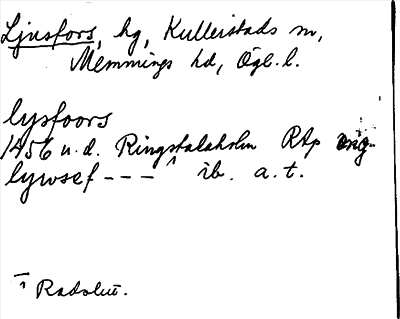 Ljusfors, hg, Kullerstads sn,
Memmings hd, Ögl. l.
lysfoors
1456 u.d. Ringstalaholm RAp orig.
lywsef --- ^ ib. a.t.
^ Radslut.